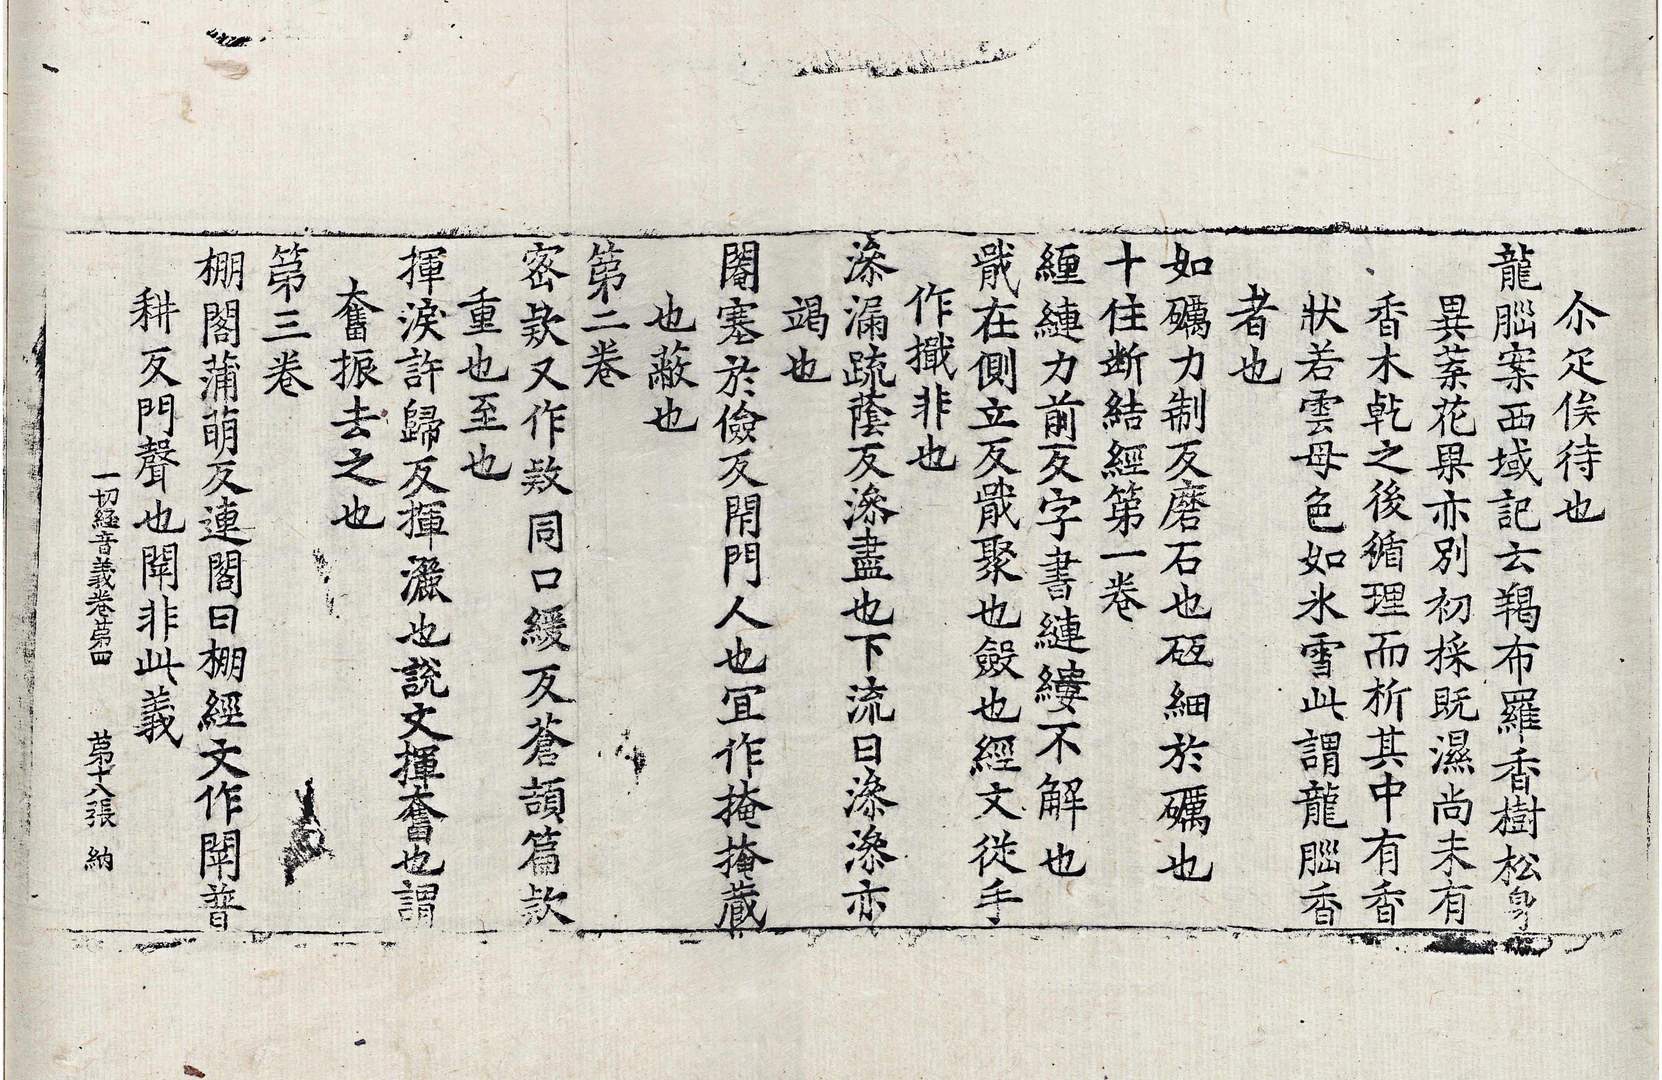 尒疋俟待也
龍𦛁案西域記云羯布羅香樹松身
異葉花果亦別初採既濕尚未有
香木乾之後循理而析其中有香
狀若雲母色如氷雪此謂龍𦛁香
者也
如礪力制反磨石也砥細於礪也
十住断結經第一卷
緾縺力前反字書縺縷不解也
戢在側立反戢聚也斂也經文從手
作擑非也
漛漏疏蔭反漛盡也下流曰漛漛亦
竭也
閹塞於儉反閇門人也冝作掩掩蔵
也蔽也
第二卷
密欵又作欵同口緩反蒼頡篇欵
重也至也
揮淚許歸反揮灑也說文揮奮也謂
奮振去之也
第三卷
棚閣蒲萌反連閣曰棚經文作閛普
耕反門聲也閛非此義
一切経音義卷苐四 苐十八張 納